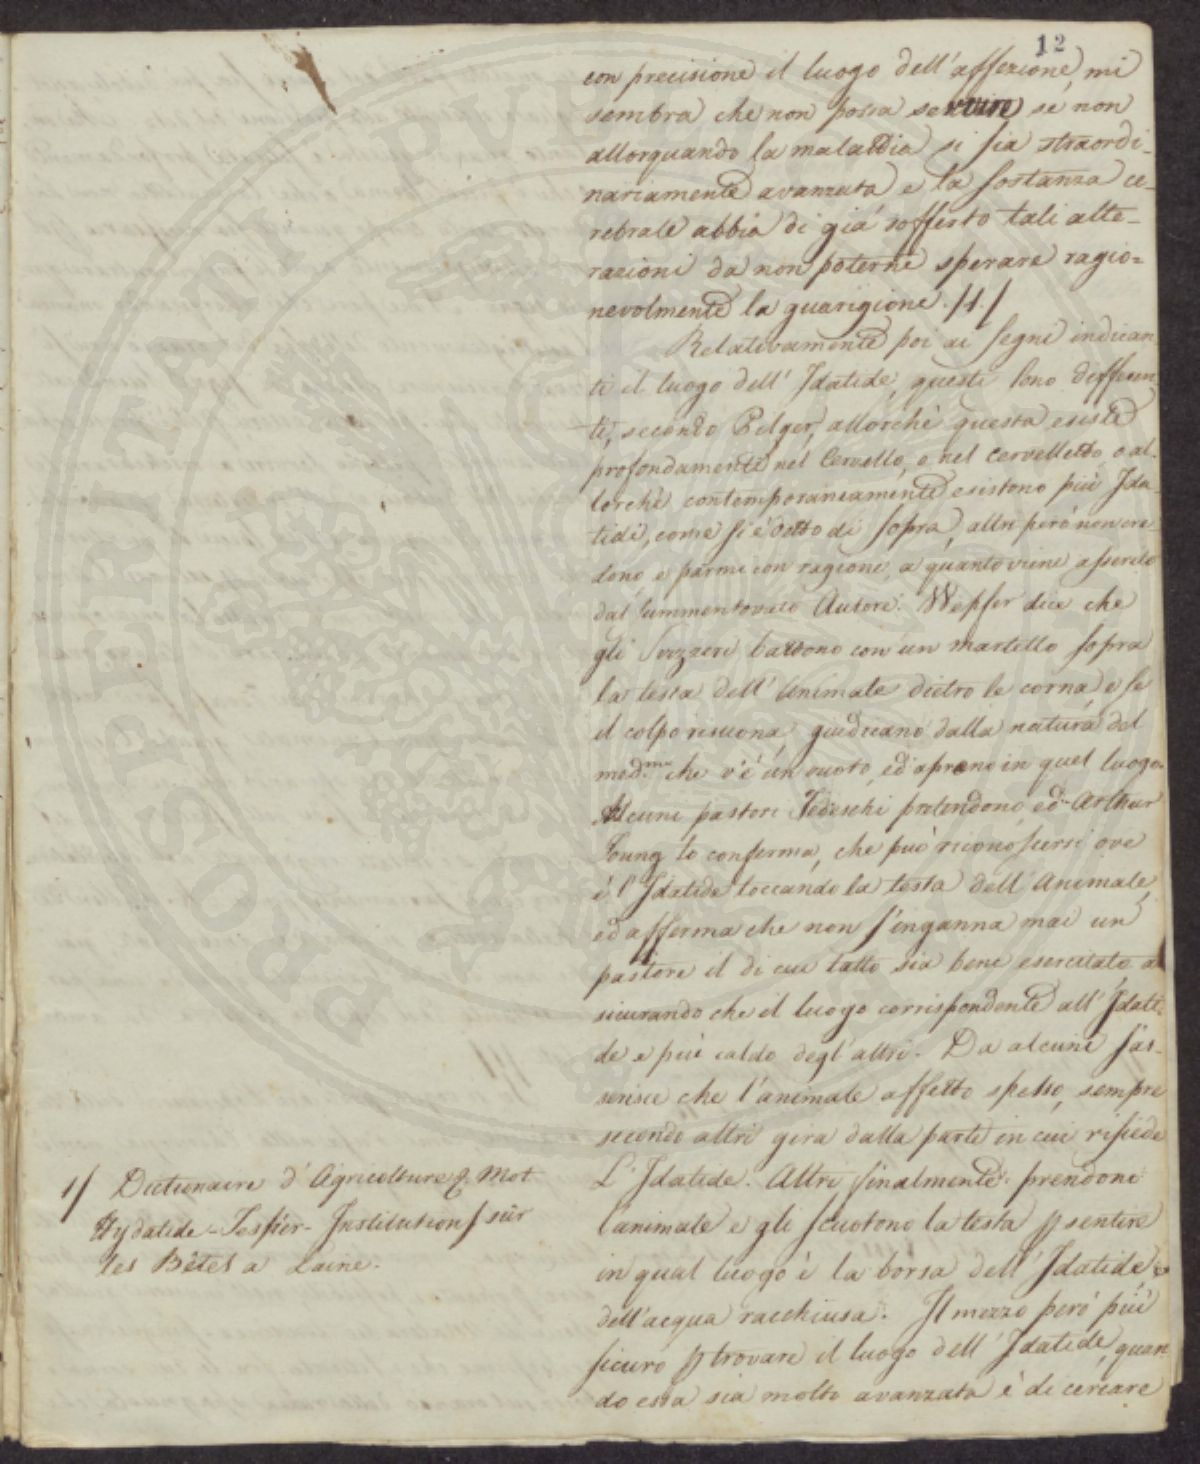 12
con precisione il luogo dell'affezione, mi
sembra che non possa servire se non
allorquando la malattia si sia straordi-
nariamente avanzata e la sostanza ce-
rebrale abbia di già sofferto tali alte-
razioni da non poterne sperare ragio=
nevolmente la guarigione. /1/
Relativamente poi ai segni indican
ti il luogo dell'Idatide, questi sono differen
ti, secondo Pelger, allorchè questa esiste
profondamente nel Cervello, o nel cervelletto, o al-
lorchè contemporaneamente esistono più Ida-
tidi, come si è detto di sopra, altri però non cre
dono, e parmi con ragione, a quanto viene asserito
dal summentovato Autore. Wepfer dice che
gli Svizzeri battono con un martello sopra
la testa dell'animale dietro le corna, e se
il colpo risuona, giudicano dalla natura del
med.mo che v'è un vuoto, ed aprono in quel luogo.
Alcuni pastori Tedeschi pretendono, ed Arthur
Young lo conferma, che può riconoscersi ove
è l'Idatide toccando la testa dell'Animale,
ed afferma che non s'inganna mai un
pastore il di cui tatto sia bene esercitato, as
sicurando che il luogo corrispondente all'Idati-
de e più caldo degl'altri. Da alcuni s'as-
serisce che l'animale affetto spesso, sempre
secondo altri gira dalla parte in cui risiede
L'Idatide. Altri finalmente prendono
l'animale e gli scuotono la testa p sentire
in qual luogo è la borsa dell'Idatide, e
dell'acqua racchiusa. Il mezzo però più
sicuro p trovare il luogo dell'Idatide, quan
do essa sia molto avanzata è di cercare
1/ Dictionaire d'Agricolture &. Mot
Hydatide - Tessier - Institutions sur
les Bêtes a Laine.
PROSPERITATI